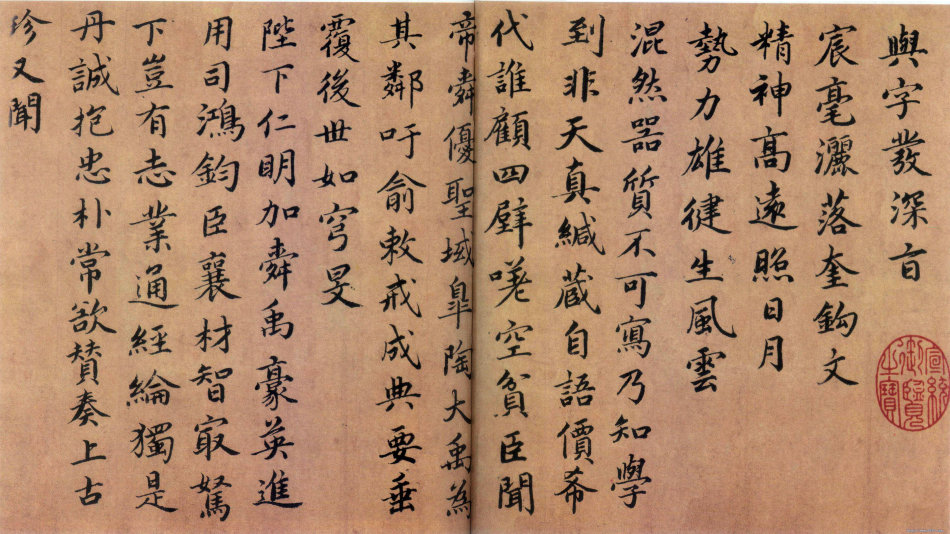 與字發深旨
宸毫灑落奎鈎文
精神高遠照日月
勢力雄健生風雲
混然器質不可寫乃知學
到非天真緘蔵自語價希
代誰顧四壁嗟空貧臣聞
帝舜優聖域皐陶大禹為
其鄰吁俞敕戒成典要垂
覆後世如穹旻
陛下仁明加舜禹豪英進
用司鴻鈞臣襄材智冣駑
下豈有志業通經綸獨是
丹誠抱忠朴常欲賛奏上古
珍又聞
宣統御覽之寶